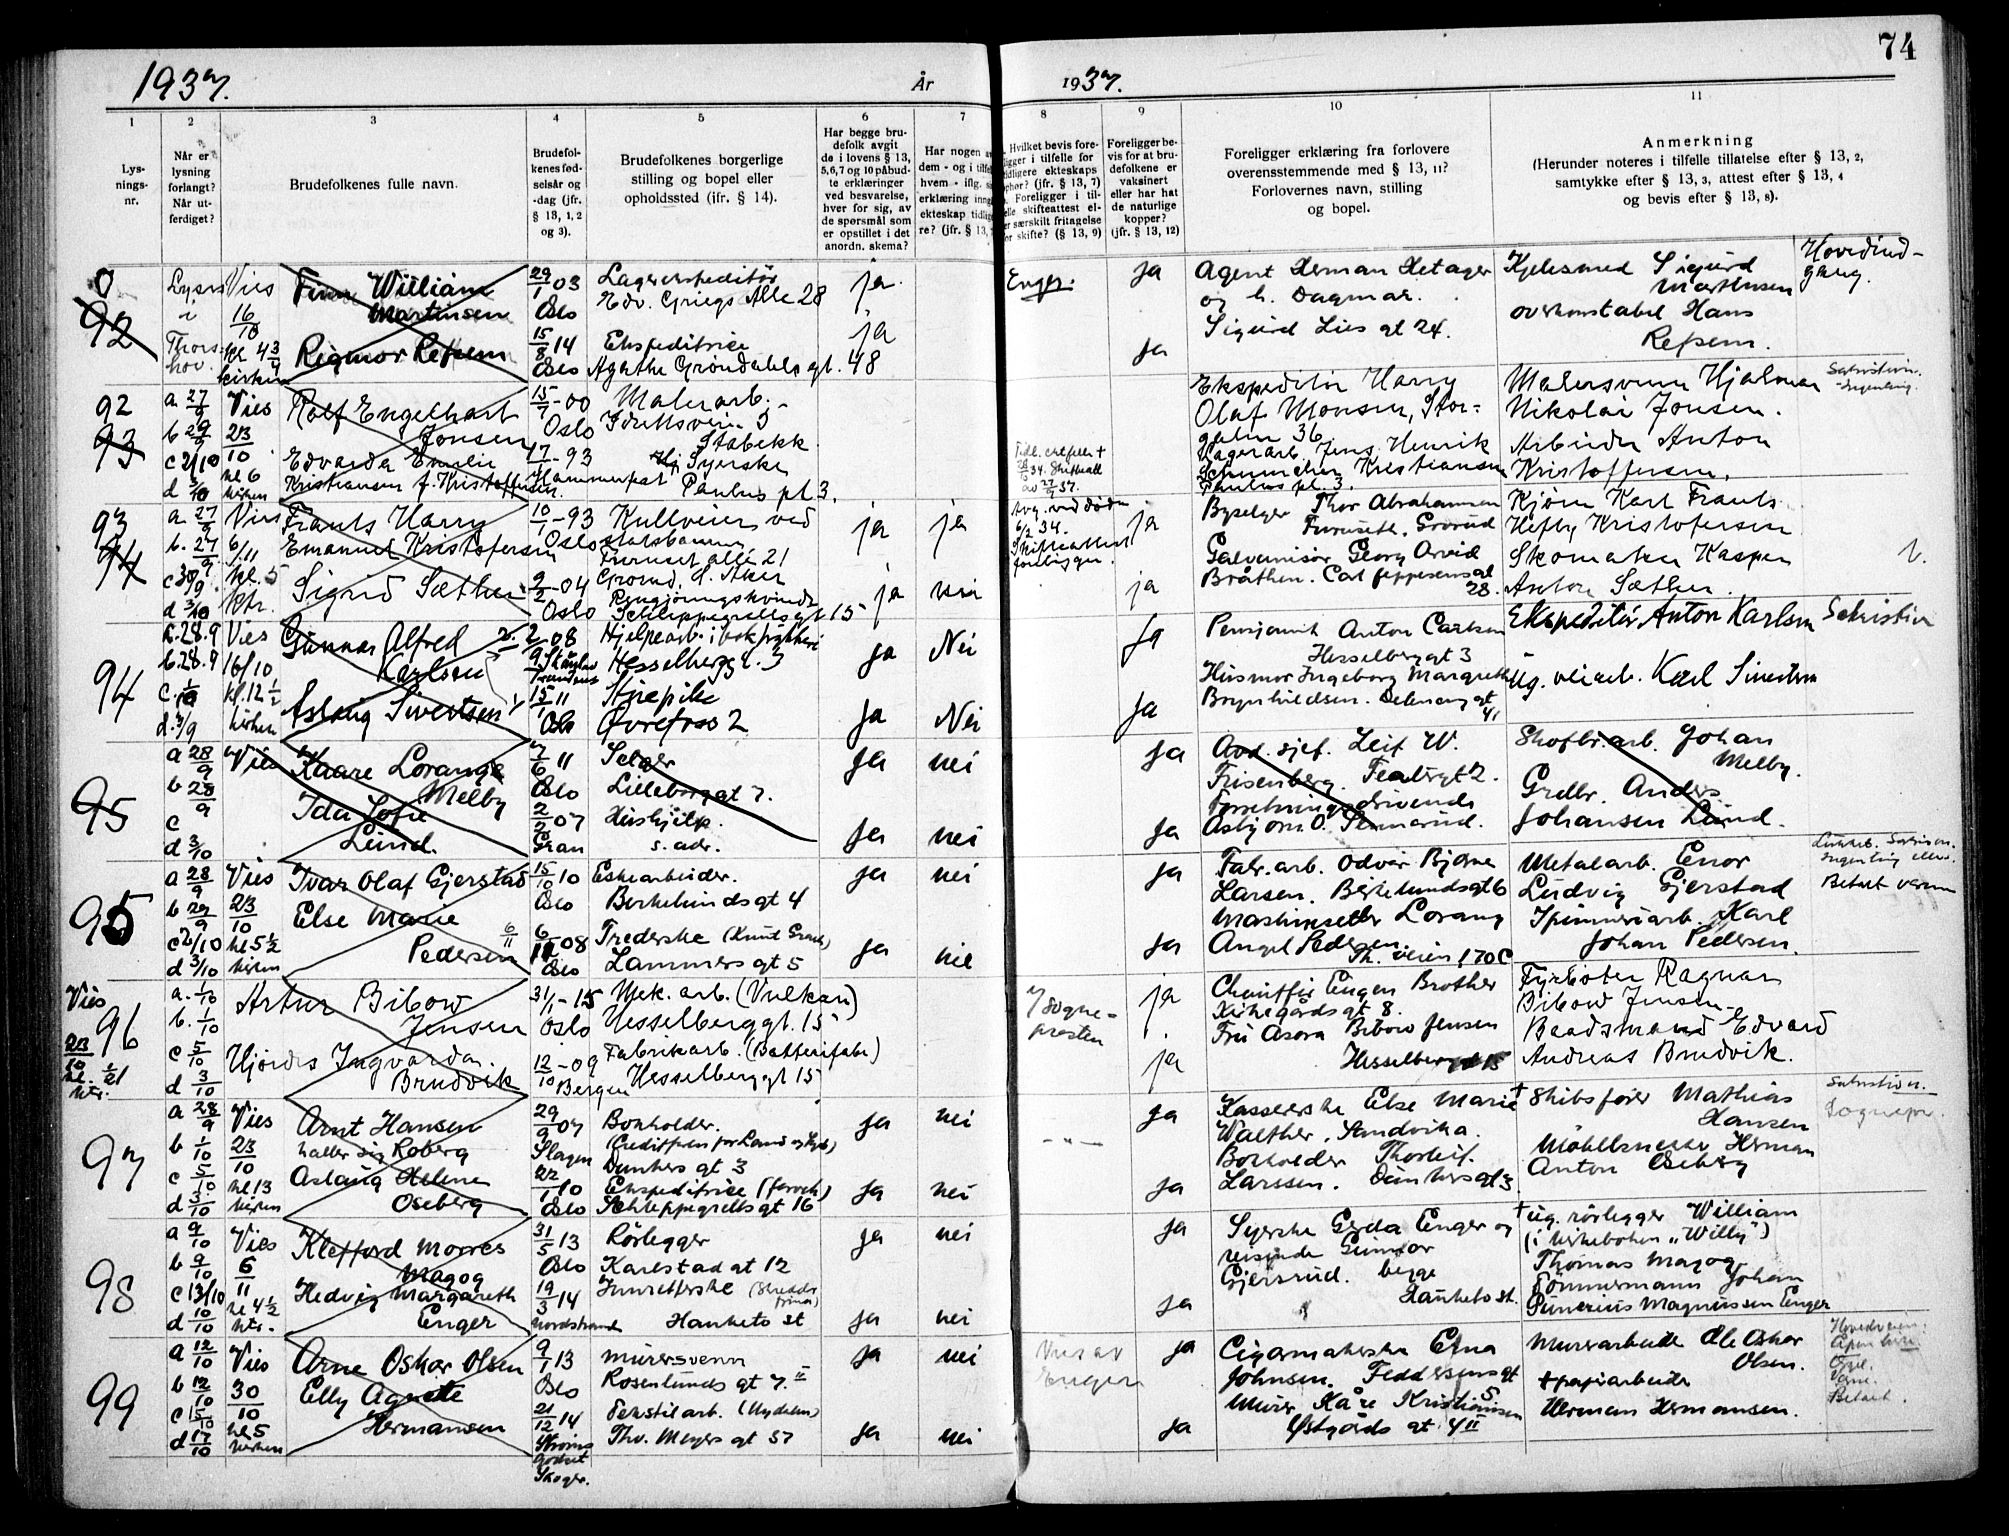 74
1937.
År
1937.
1
2
3
4
5
6
7
8
9
10
11
Lys-
nings-
nr.
Når er
lysning
forlangt?
Når ut-
ferdiget?
Brudefolkenes fulle navn.
Brudefol-
kenes fød-
selsår og
-dag (jfr.
§ 13, 1, 2
og 3).
Brudefolkenes borgerlige
stilling og bopel eller
opholdssted (ifr. § 14).
Har begge bru-
defolk avgit
de i lovens § 13,
5,6,7 og 10 påbud-
te erklæringer
ved besvarelse,
hver for sig, av
de spørsmål som
er opstillet i det
anordn. skema?
Har nogen
dem - og i
hvem - iflg.
erklæring inng
ekteskap tidlig
re? (jfr. § 13,
Hvilket bevis fore-
ligger i tilfelle for
tidligere ekteskaps
ophør? (jfr. § 13, 7)
Foreligger i til-
elle skifteattest el-
er særskilt fritagelse
or skifte? (§ 13, 9)
Foreligger be-
vis for at bru-
defolkene er
vaksinert
eller har hat
de naturlige
kopper?
(jfr. § 13, 12)
Foreligger erklæring fra forlovere
overensstemmende med § 13, 11?
Forlovernes navn, stilling
og bopel.
Anmerkning
(Herunder noteres i tilfelle tillatelse efter § 13, 2,
samtykke efter § 13, 3, attest efter § 13, 4
og bevis efter § 13, 8).
0
92
Vies
16/10
Finn William
Martinsen
29/1 03
Oslo
Lagerekspeditør
Edv. Griegs Alle 28
ja
ja
Agent Herman Hetager
og h. Dagmar.
Sigurd Lies gt 24.
Sigurd
Martinsen
Hovedind-
gang.
kl 4 3/4
kirken
Rigmor Refsem
15/8 14
Oslo
Ekspeditrise
Agathe Grøndahls gt. 48
ja
ja
overkonstabel Hans
Refsem.
92
93
a 27/9
b 29/9
c 2/10
d 3/10
Vies
23/10
kl 6
kirken
Rolf Engelhart
Jonsen
15/7-00
Oslo
Malerarb.
Stabekk
Ekspeditør Harry
Olaf Monsen, Stor-
gaten 36
Malersvenn Hjalmar
Nikolai Jonsen.
Edvarda Emelie
Kristiansen f. Kristoffersen.
17/4-93
Hammerfest
Syerske
Paulus pl 3.
Lagerarb. Jens Henrik
Kristiansen
Paulus pl. 3.
Arbeider Anton
Kristoffersen.
93
94
a 27/9
b. 27/9
c 30/9
d 3/10
Vies
6/11
kl. 5
ktr.
Frants Harry
Emanuel Kristofersen
10/1-93
Oslo
Kullveier ved
statsbanen
Furuset alle 21
Grorud, Ø. Aker
ja
ja
6/2 34.
ja
Thor Abrahamsen
Furuseth. Grorud
Kjørn Karl Frants
Hefty Kristofersen
Sigrid Sæther
2/2-04
Oslo
Rengjøringskvinde
Schleppegrellsgt 15
ja
nei
ja
Galvanisør Georg Arvid
Bråthen. Carl Jeppesens gt
28.
Skomaker Kasper
Anton Sæther.
94
a. 28.9
b. 28.9
c. 1/10
d. 3/9
Vies
16/10
kl. 12 1/2
kirken
Gunnar Alfred
Karlsen
2/2 08
Hjelpearb. i boktrykkeri
Hesselbergs gt. 3
Ja
Nei
Ja
Pensjonist Anton Carlsen
Hesselberg gt 3
Ekspeditør Anton Karlsen
Sakristien
Aslaug Sivertsen
15/1 11
Oslo
Strepike
Øvrefoss 2
Ja
Nei
Ja
Husmor Ingeborg Margrethe
Brynhildsen. Delenenggt
41
Ug. veiarb. Karl Sivertsen
95
a 28/9
b 28/9
c
d 3/10
Vies
Kaare Lorange
Melby
7/6 11
Oslo
Selger
Lilleborg gt 7.
Ja
nei
Ja
Avd. sjef. Leif W.
Frisenberg. Teatergt 2.
Skofbr. arb. Johan
Melby.
Ida Sofie
Lund.
2/2 07
Gran
Hushjelp.
s. adr.
Ja
nei
Ja
Forretningsdrivende
Asbjørn O. Semerud.
Grdbr. Anders
Johansen Lund.
95
a 28/9
b 29/9
c 2/10
d 3/10
Vies
23/10
kl 5 1/2
kirken
Ivar Olaf Gjerstad
15/10 10
Oslo
Eskearbeider.
Birkelunds gt 4
Ja
nei
Ja
Fabr. arb. Odvar Bjarne
Larsen. Birkelundsgt 6
Metalarb. Enor
Ludvig Gjerstad
Betalt
Else Marie
Pedersen
6/11 08
Oslo
Trederske (Knut Graah)
Lammers gt 5
Ja
nei
Ja
Maskinsetter Lorang
Angel Pedersen.
Th. veien 170 C
Spinneriarb. Karl
Johan Pedersen.
Vies
96
23/10
ktr.
a. 1/10
b. 1/10
c 5/10
d 3/10
Artur Bibow
Jensen
31/1-15
Oslo
Mek. arb. (Vulkan)
Hesselberg gt. 15
Sogne-
presten
ja
Chauffør Eugen Brother
Kirkegårds gt 8.
Fyrbøter Ragnar
Bibow Jensen
Hjørdis Ingvarda
Brudvik
12/10-09
Bergen
Fabrikarb. (Batterifabr)
Hesselberg gt 15
ja
Fru Asora Bibow Jensen
Hesselberg gt 15
Baadsmand Edvard
Andreas Brudvik.
97
a 28/9
b 1/10
c 5/10
d 3/10
Vies
23/10
kl 13
kirken
Arnt Hansen
kaller sig Roberg
29/9 07
Slagen
Bokholder.
Dunkers gt 3
Ja
nei
Ja
Kassererske Else Marie
Walther. Sandvika.
+ Skibsfører Mathias
Hansen
Sakristien.
Sognepr.
Aslaug Helene
Oseberg
22/1 10
Oslo
Ekspeditrise
Schleppegrells gt 16
Ja
nei
Ja
Bokholder Thorleif
Larssen. Dunkersgt 3
Møbelsnekker Herman
Anton Oseberg
98
a 9/10
b 9/10
c 13/10
d 10/10
Vies
6/11
kl 4 1/2
ktr.
Klefford Morres
Magog
31/5 13
Oslo
Rørlegger
Karlstad gt 12
Ja
nei
Ja
Syerske Gerda Enger og
reisende Gunnar
Gjersrud. begge
Hauketo st.
+ ug. rørlegger William
(i kirkeboken "Willy")
Thomas Magog
Hedvig Margareth
Enger
19/3 14
Nordstrand
Hauketo st
Ja
nei
Ja
Tømmermann Johan
Magnussen Enger
99
a 12/10
b 12/10
c 15/10
d 17/10
Vies
30/10
kl 5
kirken
Arne Oskar Olsen
9/1 13
Oslo
Murersvenn
Rosenlunds gt 7. II
Ja
nei
Vies av
Enger
Ja
Cigarmakerske Edna
Johnsen. Feddersens gt
5
Murerarbeide Ole Oskar
Olsen.
Betalt
Elly Agnete
Hermansen
21/12 14
Skoger.
Tekstilarb. (Nydalen)
Thv. Meyers gt 57
Ja
nei
Ja
Murer Kåre Kristiansen
Østgårds gt 4 II
+ papirarbeide
Herman Hermansen.